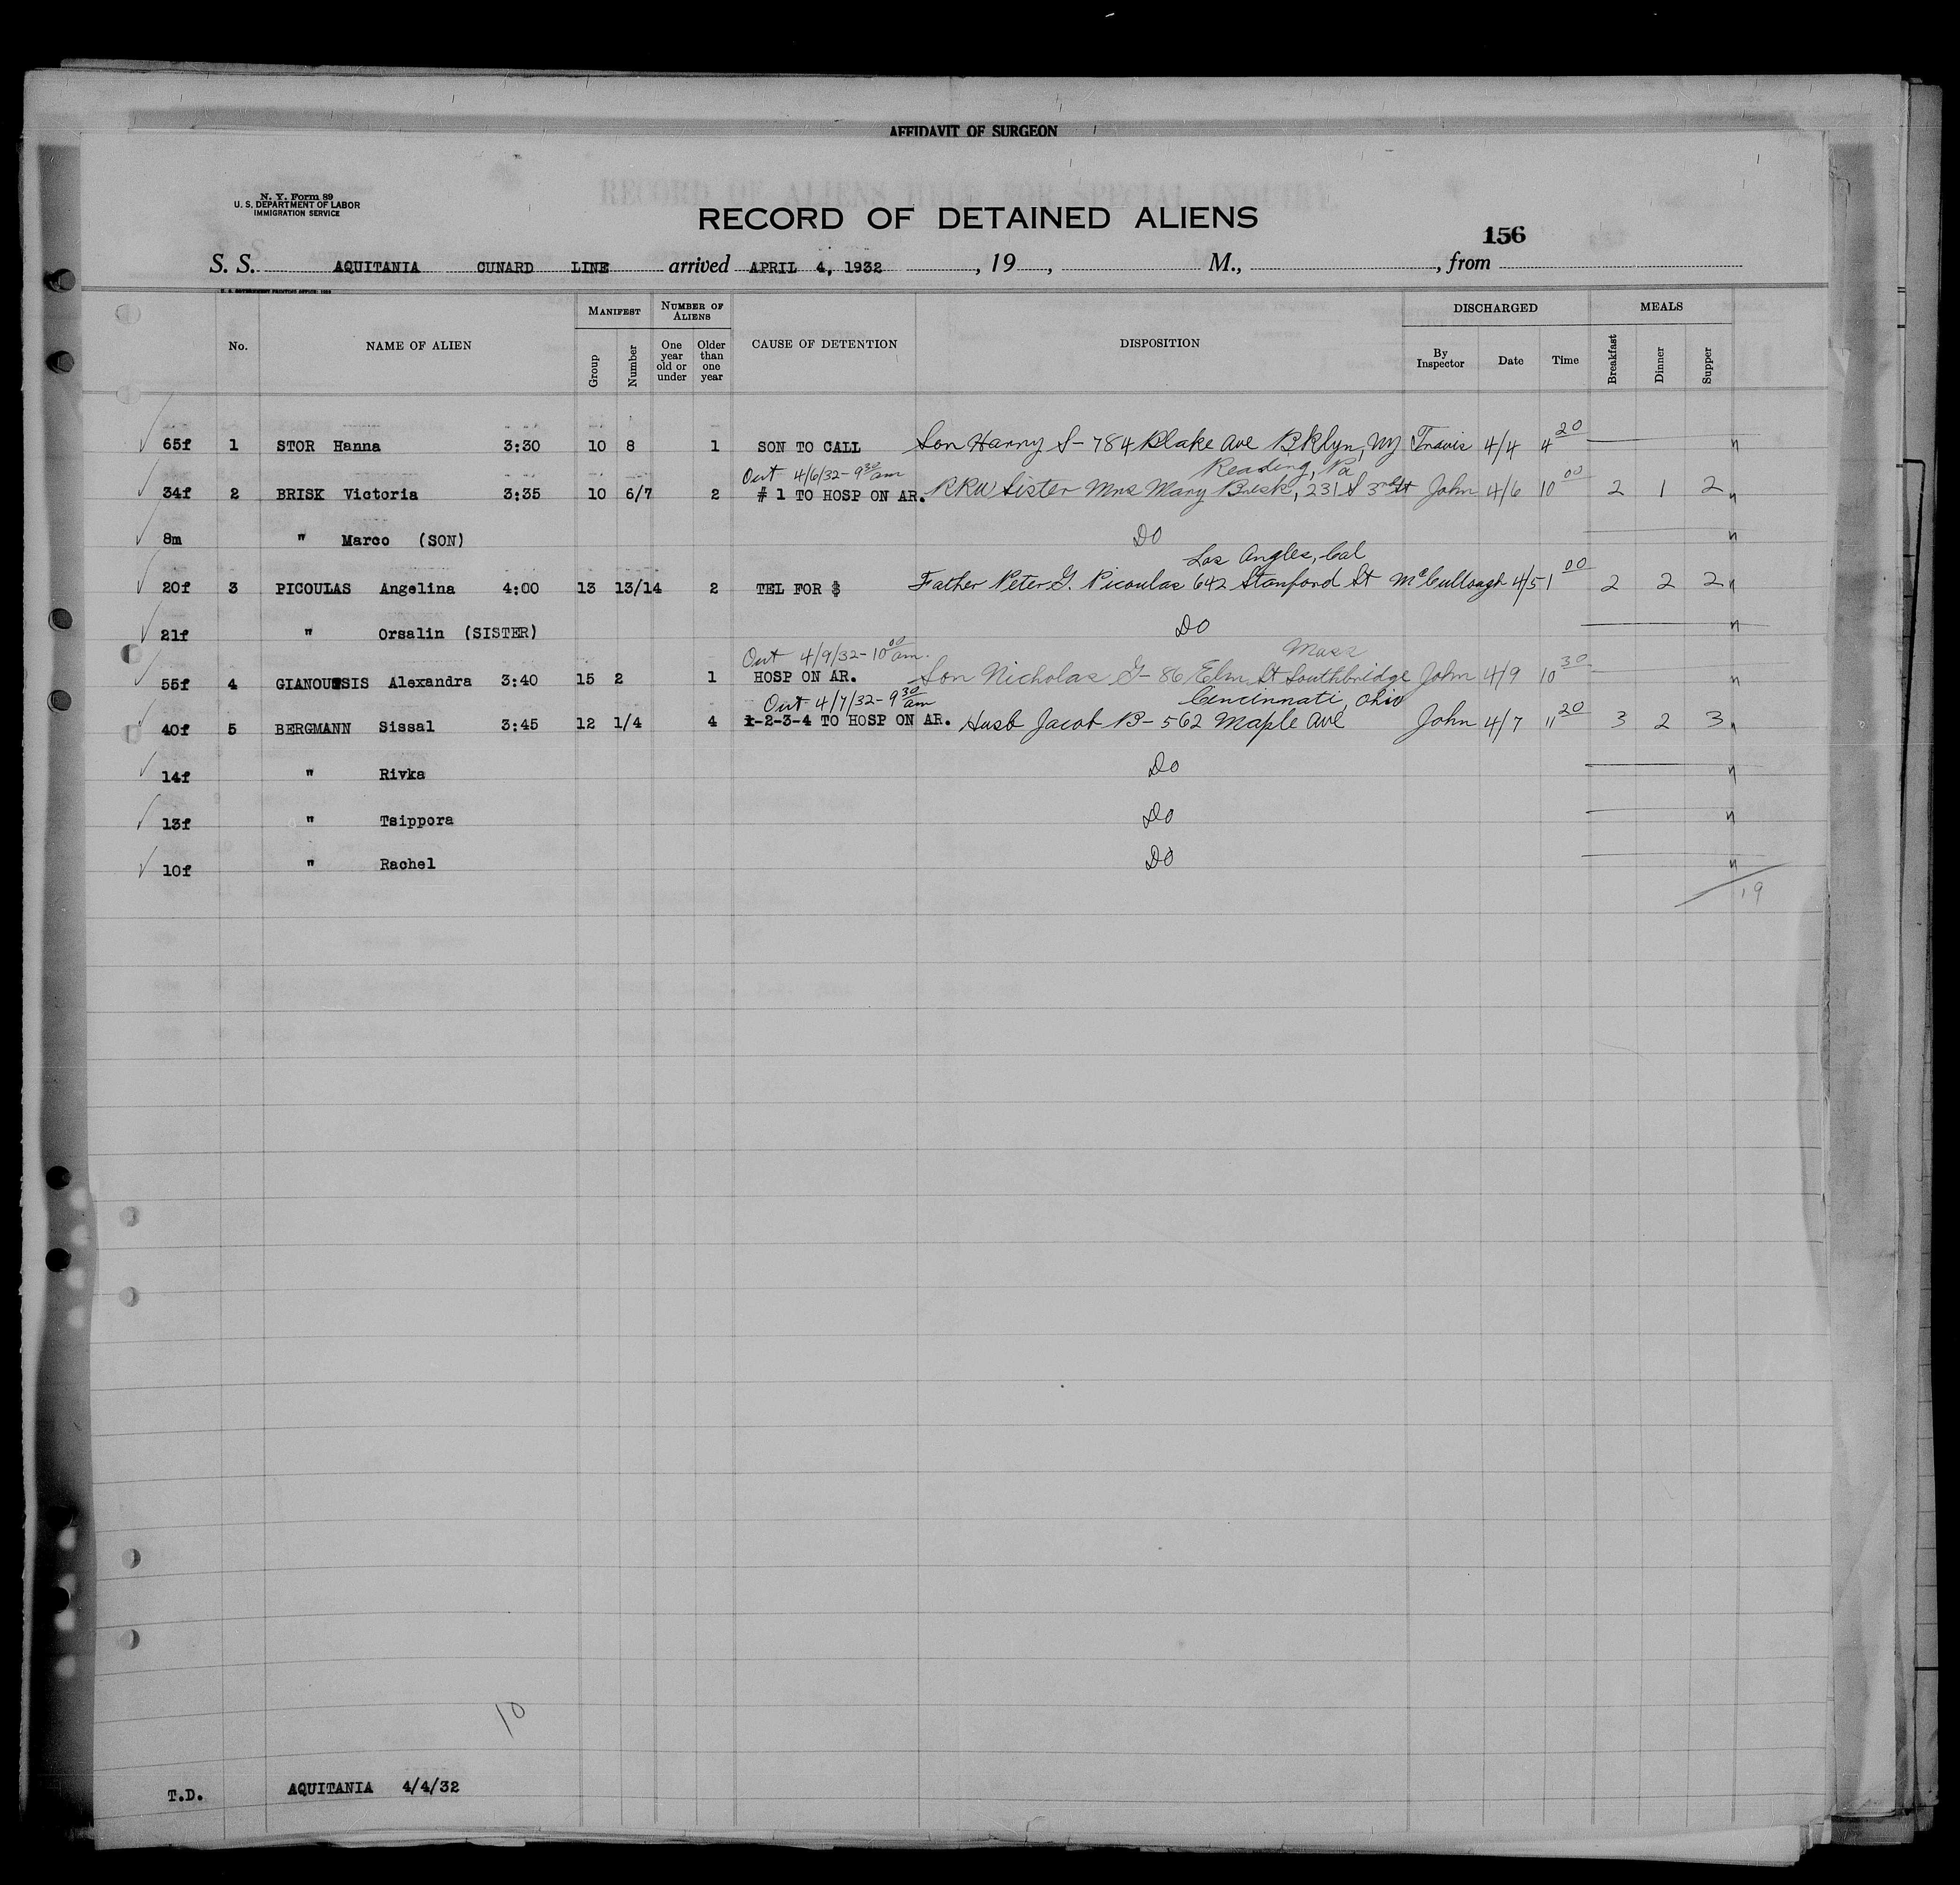 AFFIDAVIT OF SURGEON
N. Y. Form 89
U. S. DEPARTMENT OF LABOR
IMMIGRATION SERVICE
RECORD OF ALIENS HELD FOR SPECIAL INQUIRY.
RECORD OF DETAINED ALIENS
156
S. S. AQUITANIA CUNARD LINE arrived APRIL 4, 1932 , 19 , M., , from
MANIFEST NUMBER OF ALIENS DISCHARGED MEALS
No. NAME OF ALIEN Group Number One year old or under Older than one year CAUSE OF DETENTION DISPOSITION By Inspector Date Time Breakfast Dinner Supper
65f 1 STOR Hanna 3:30 10 8 1 SON TO CALL Son Harry S- 784 Blake Ave BKlyn, NY Travis 4/4 4 20
Out 4/6/32 - 9 30 am Reading, Pa
34f 2 BRISK Victoria 3:35 10 6/7 2 # 1 TO HOSP ON AR. RRW Sister Mrs Mary Brisk, 231 S 3rd St John 4/6 10 00 2 1 2
8m " Marco (SON) DO
Los Angles, Cal
20f 3 PICOULAS Angelina 4:00 13 13/14 2 TEL FOR $ Father Peter G. Picoulas 642 Stanford St McCullough 4/5 1 00 2 2 2
21f " Orsalin (SISTER) DO
Out 4/9/32 - 10 00 am. Mass
55f 4 GIANOUSSIS Alexandra 3:40 15 2 1 HOSP ON AR. Son Nicholas G- 86 Elm St Southbridge John 4/9 10 30
Out 4/7/32 - 9 30 am Cincinnati, Ohio
40f 5 BERGMANN Sissal 3:45 12 1/4 4 1-2-3-4 TO HOSP ON AR. Husb Jacob B- 562 Maple Ave John 4/7 11 20 3 2 3
14f " Rivka DO
13f " Tsippora DO
10f " Rachel DO
19
10
T.D. AQUITANIA 4/4/32